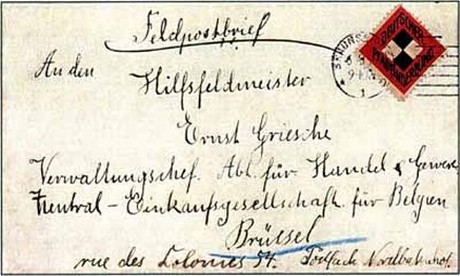 Feldpostbrief
An den
Hilfsfeldmeister
Ernst Griesche
Verwaltungschef. Abt. für Handel & Gewerbe
Zentral - Einkaufsgesellschaft für Belgien
Brüssel
rue des Colonies 54. Postfach Nordbahnhof.